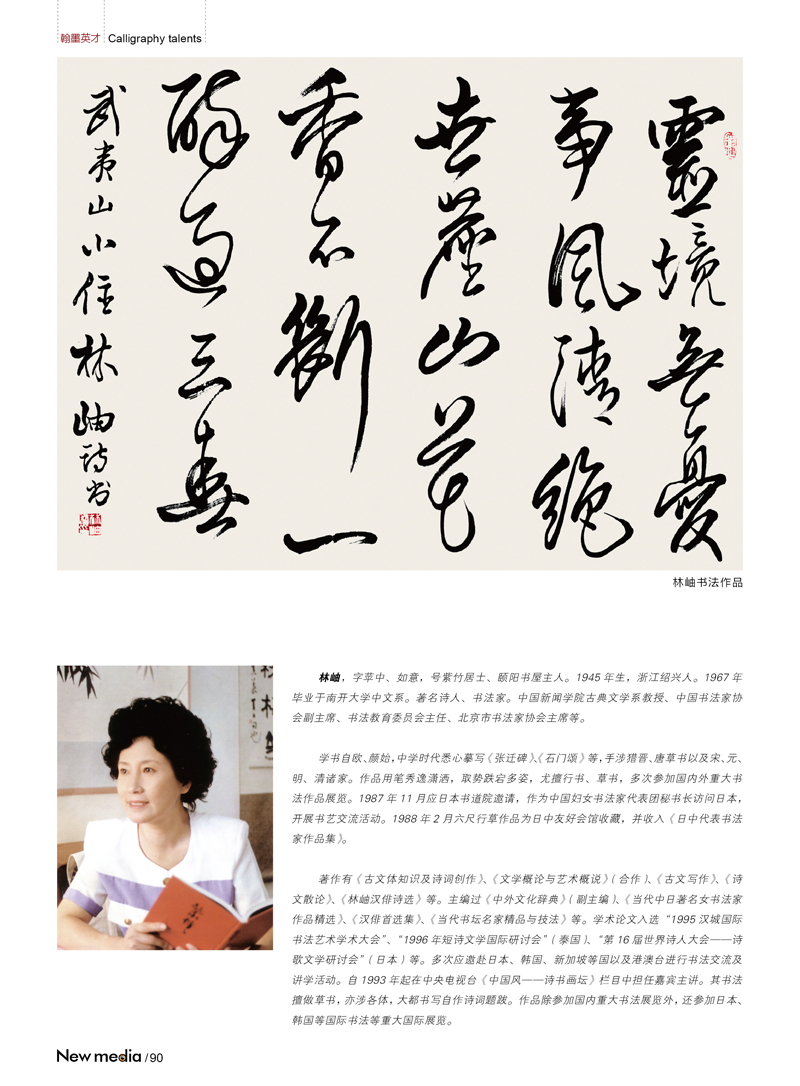 翰墨英才 Calligraphy talents
靈境無憂
事風清絕
世塵山花
香不斷一
醉過三春
武夷山小住林岫詩書
林岫书法作品
林岫，字苹中、如意，号紫竹居士、颐阳书屋主人。1945 年生，浙江绍兴人。1967 年
毕业于南开大学中文系。著名诗人、书法家。中国新闻学院古典文学系教授、中国书法家协
会副主席、书法教育委员会主任、北京市书法家协会主席等。
学书自欧、颜始，中学时代悉心摹写《张迁碑》、《石门颂》等，手涉猎晋、唐草书以及宋、元、
明、清诸家。作品用笔秀逸潇洒，取势跌宕多姿，尤擅行书、草书，多次参加国内外重大书
法作品展览。1987 年 11 月应日本书道院邀请，作为中国妇女书法家代表团秘书长访问日本，
开展书艺交流活动。1988 年 2 月六尺行草作品为日中友好会馆收藏，并收入《日中代表书法
家作品集》。
著作有《古文体知识及诗词创作》、《文学概论与艺术概说》（合作）、《古文写作》、《诗
文散论》、《林岫汉俳诗选》等。主编过《中外文化辞典》（副主编）、《当代中日著名女书法家
作品精选》、《汉俳首选集》、《当代书坛名家精品与技法》等。学术论文入选 “1995 汉城国际
书法艺术学术大会”、“1996 年短诗文学国际研讨会”（泰国）、“第 16 届世界诗人大会——诗
歌文学研讨会”（日本）等。多次应邀赴日本、韩国、新加坡等国以及港澳台进行书法交流及
讲学活动。自 1993 年起在中央电视台《中国风——诗书画坛》栏目中担任嘉宾主讲。其书法
擅做草书，亦涉各体，大都书写自作诗词题跋。作品除参加国内重大书法展览外，还参加日本、
韩国等国际书法等重大国际展览。
New media / 90